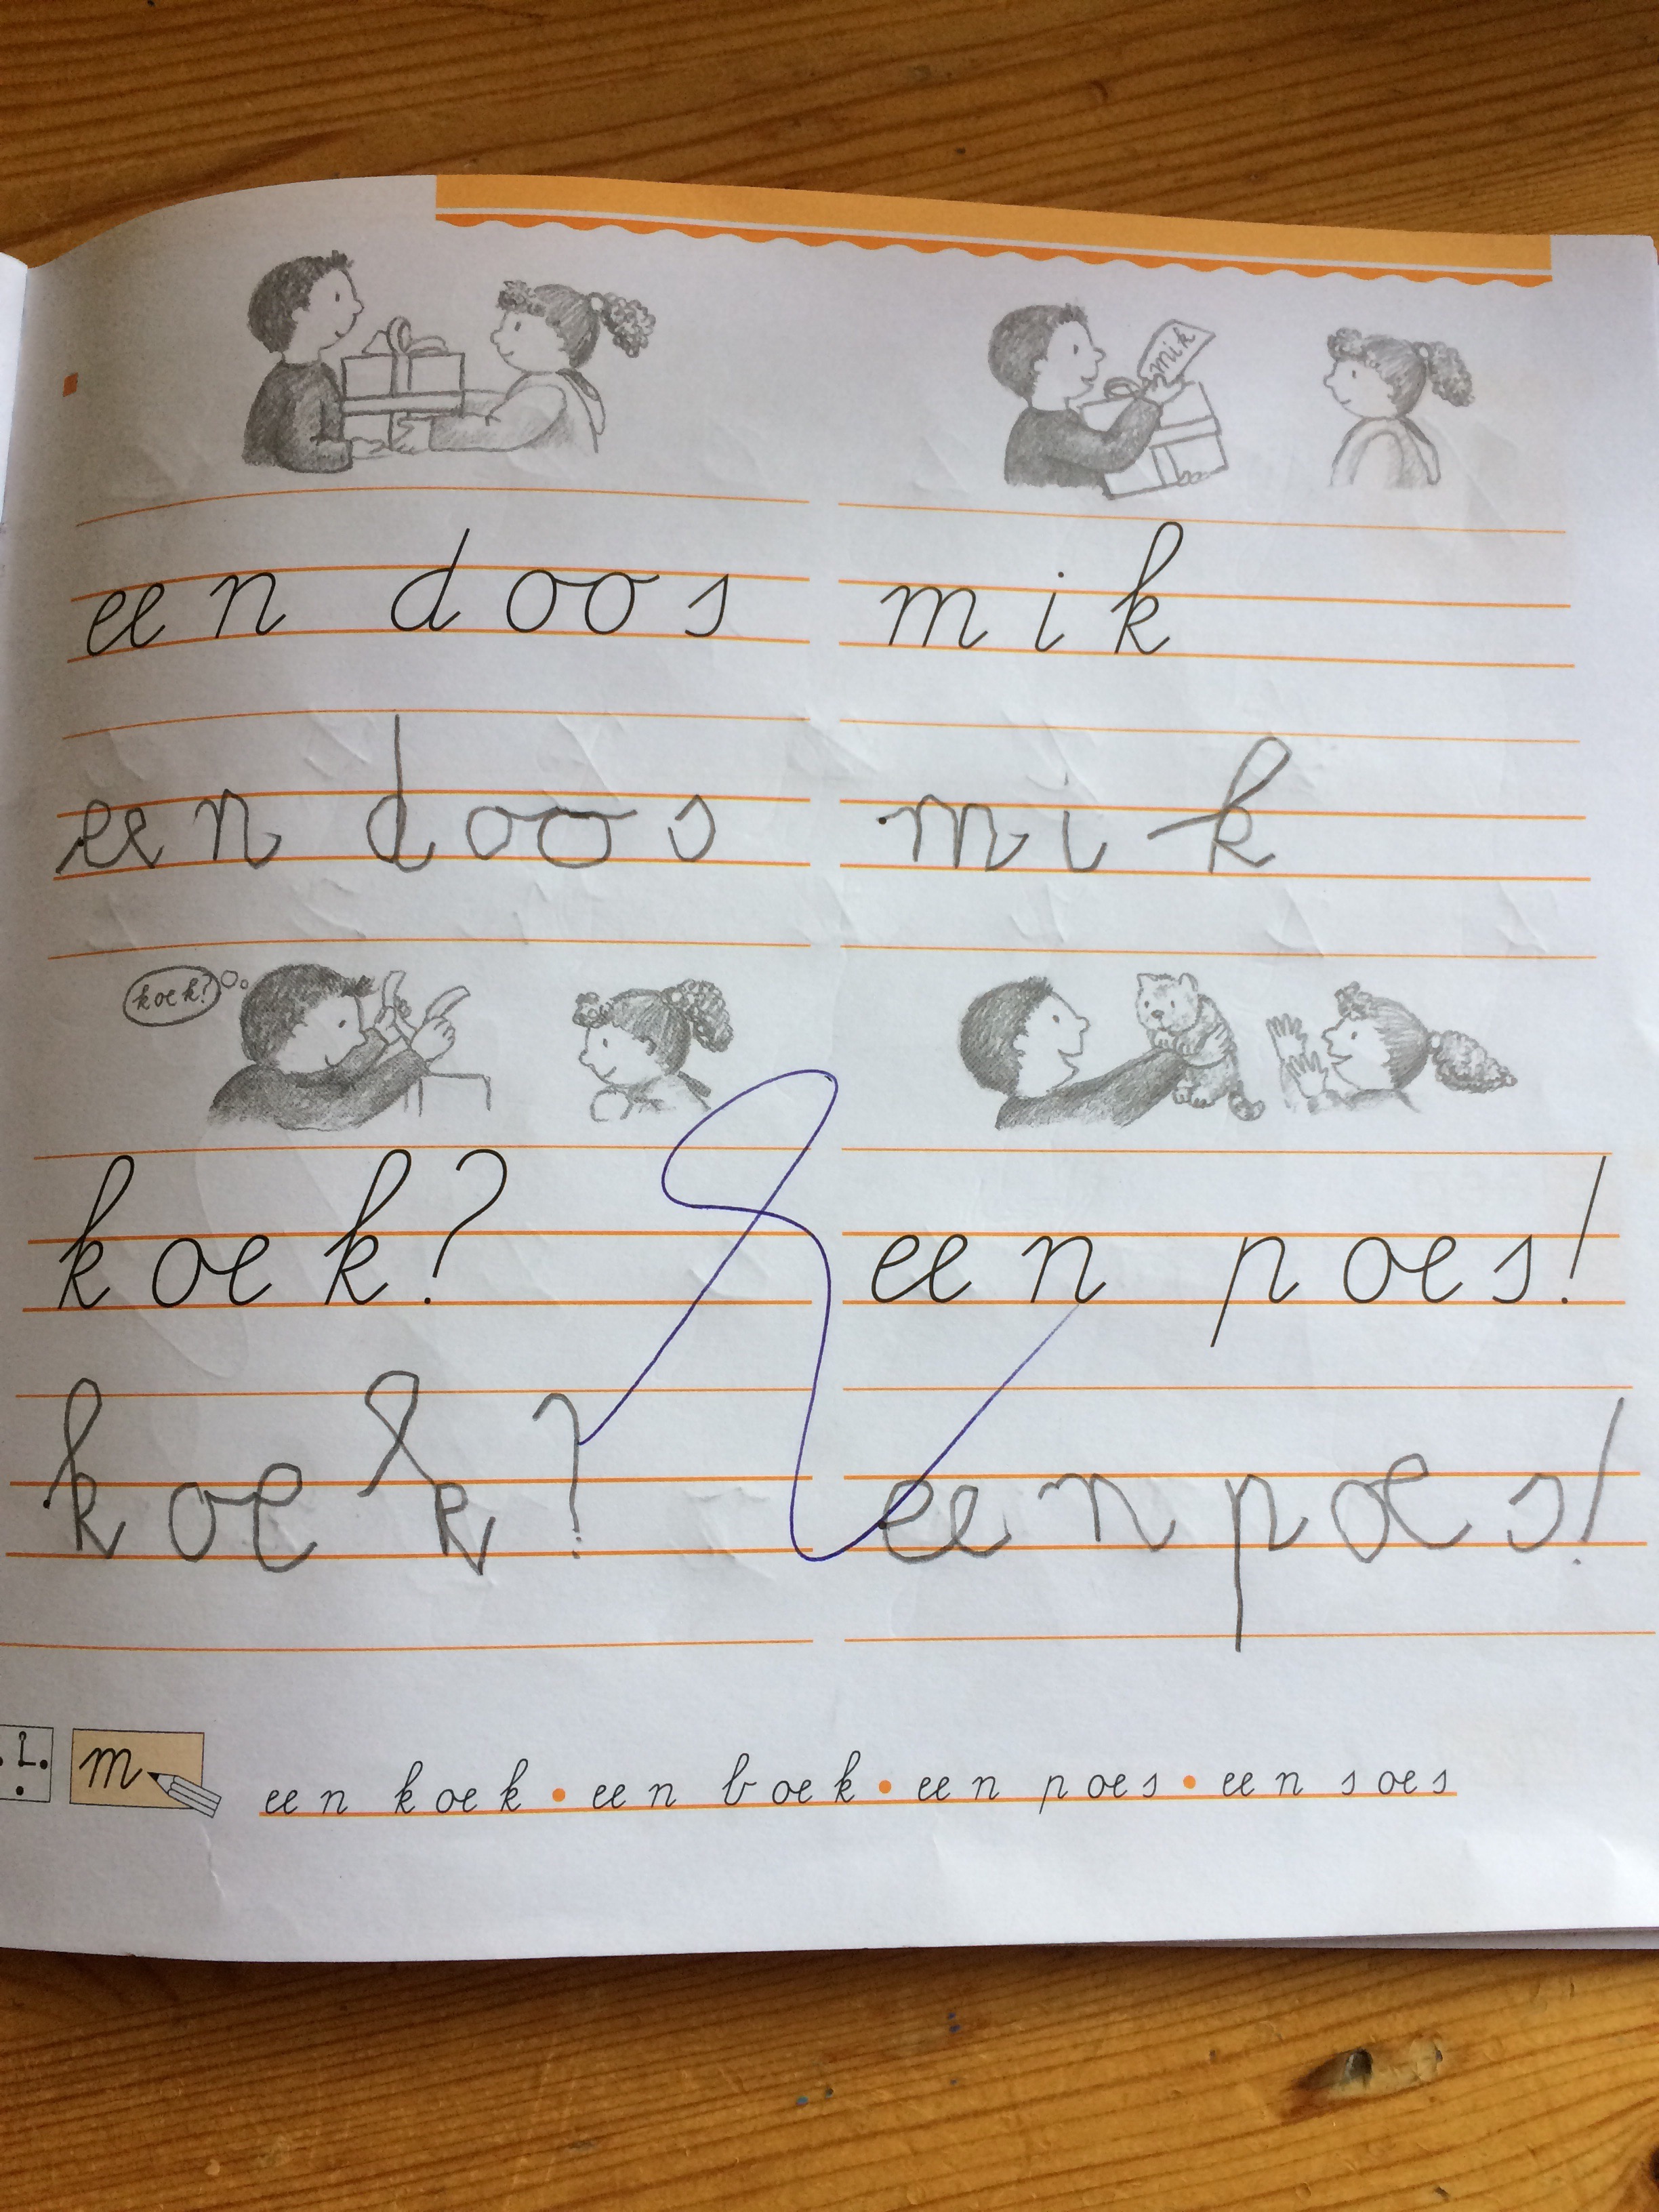 mik
een doos mik
een doos mik
koek?
koek? een poes!
koek? een poes!
m een koek • een boek • een poes • een soes